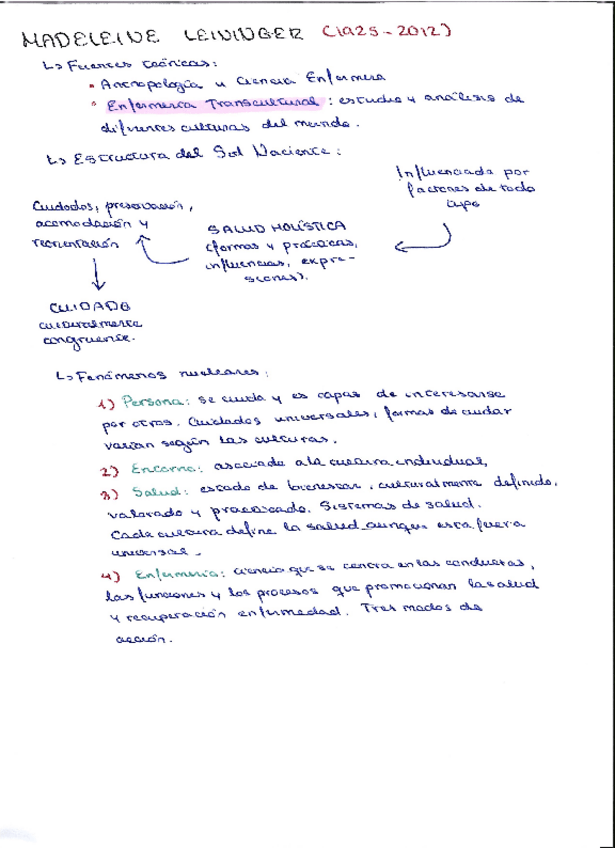 MADELEINE LEININGER (1925-2012)
↳ Fuentes teóricas:
• Antropología y Ciencia Enfermera
• Enfermería Transcultural: estudio y análisis de
diferentes culturas del mundo.
↳ Estructura del Sol Naciente:
Influenciada por
factores de todo
tipo
Cuidados, preservación,
acomodación y
reorientación
SALUD HOLÍSTICA
(formas y prácticas,
influencias, expre-
siones).
CUIDADO
culturalmente
congruente.
↳ Fenómenos nucleares:
1) Persona: se cuida y es capas de interesarse
por otros. Cuidados universales, formas de cuidar
varian según las culturas.
2) Entorno: asociado a la cultura individual,
3) Salud: estado de bienestar, culturalmente definido,
valorado y practicado. Sistemas de salud.
Cada cultura define la salud aunque esta fuera
universal.
4) Enfermería: ciencia que se centra en las conductas,
las funciones y los procesos que promocionan la salud
y recuperación enfermedad. Tres modos de
acción.